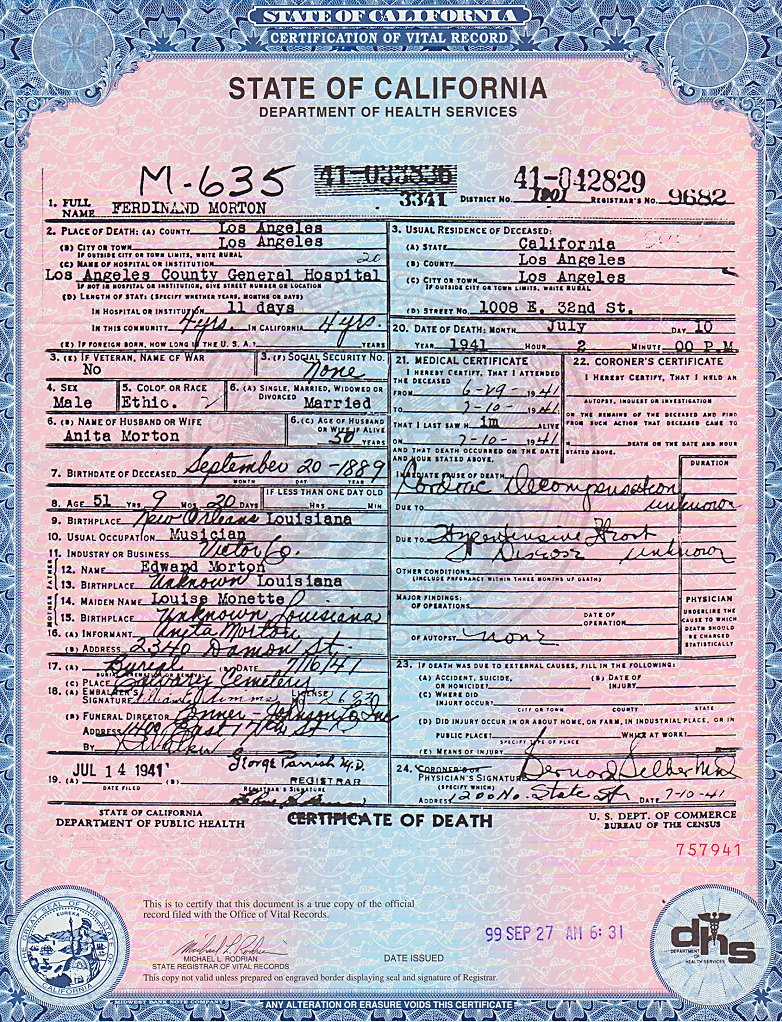 STATE OF CALIFORNIA
CERTIFICATION OF VITAL RECORD
STATE OF CALIFORNIA
DEPARTMENT OF HEALTH SERVICES
M-635 41-033836 41-042829
3341 DISTRICT No. 1901 REGISTRAR'S No. 9682
1. FULL NAME FERDINAND MORTON
2. PLACE OF DEATH: (A) COUNTY Los Angeles
(B) CITY OR TOWN Los Angeles
IF OUTSIDE CITY OR TOWN LIMITS, WRITE RURAL
(C) NAME OF HOSPITAL OR INSTITUTION 20
Los Angeles County General Hospital
IF NOT IN HOSPITAL OR INSTITUTION, GIVE STREET NUMBER OR LOCATION
(D) LENGTH OF STAY: (SPECIFY WHETHER YEARS, MONTHS OR DAYS)
IN HOSPITAL OR INSTITUTION 11 days
IN THIS COMMUNITY 4 yrs. IN CALIFORNIA 4 yrs.
(E) IF FOREIGN BORN, HOW LONG IN THE U. S. A.? YEARS
3. USUAL RESIDENCE OF DECEASED:
(A) STATE California
(B) COUNTY Los Angeles
(C) CITY OR TOWN Los Angeles
IF OUTSIDE CITY OR TOWN LIMITS, WRITE RURAL
(D) STREET NO. 1008 E. 32nd St.
20. DATE OF DEATH: MONTH July DAY 10
YEAR 1941 HOUR 2 MINUTE 00 P.M
3. (E) IF VETERAN, NAME OF WAR
No
3. (F) SOCIAL SECURITY NO.
None
4. SEX
Male
5. COLOR OR RACE
Ethio. 2
6. (A) SINGLE, MARRIED, WIDOWED OR DIVORCED
Married
6. (B) NAME OF HUSBAND OR WIFE
Anita Morton
6. (C) AGE OF HUSBAND OR WIFE IF ALIVE
50 YEARS
7. BIRTHDATE OF DECEASED September 20-1889
MONTH DAY YEAR
8. AGE 51 YRS 9 MOS 20 DAYS
IF LESS THAN ONE DAY OLD
HRS. MIN
9. BIRTHPLACE New Orleans Louisiana
10. USUAL OCCUPATION Musician
11. INDUSTRY OR BUSINESS Victor Co.
FATHER
12. NAME Edward Morton
13. BIRTHPLACE Unknown Louisiana
MOTHER
14. MAIDEN NAME Louise Monette
15. BIRTHPLACE Unknown Louisiana
16. (A) INFORMANT Anita Morton
(B) ADDRESS 2340 Damon St.
17. (A) Burial (B) DATE 7/16/41
(C) PLACE Calvary Cemetery
18. (A) EMBALMER'S SIGNATURE LICENSE
(B) FUNERAL DIRECTOR Conner-Johnson Co Inc
ADDRESS 1400 East 17th St
BY
19. (A) JUL 14 1941 (B) George Parrish M.D.
DATE FILED REGISTRAR
REGISTRAR'S SIGNATURE
21. MEDICAL CERTIFICATE
I HEREBY CERTIFY, THAT I ATTENDED THE DECEASED
FROM 6-29- 1941
TO 7-10- 1941
THAT I LAST SAW H im ALIVE
ON 7-10- 1941
AND THAT DEATH OCCURRED ON THE DATE AND HOUR STATED ABOVE.
22. CORONER'S CERTIFICATE
I HEREBY CERTIFY, THAT I HELD AN
AUTOPSY, INQUEST OR INVESTIGATION
ON THE REMAINS OF THE DECEASED AND FIND FROM SUCH ACTION THAT DECEASED CAME TO
DEATH ON THE DATE AND HOUR STATED ABOVE.
DURATION
IMMEDIATE CAUSE OF DEATH
Cardiac Decompensation unknown
DUE TO
DUE TO Hypertensive Heart Disease unknown
OTHER CONDITIONS
(INCLUDE PREGNANCY WITHIN THREE MONTHS OF DEATH)
MAJOR FINDINGS:
OF OPERATIONS
DATE OF OPERATION
OF AUTOPSY none
PHYSICIAN
UNDERLINE THE CAUSE TO WHICH DEATH SHOULD BE CHARGED STATISTICALLY
23. IF DEATH WAS DUE TO EXTERNAL CAUSES, FILL IN THE FOLLOWING:
(A) ACCIDENT, SUICIDE, OR HOMICIDE?
(B) DATE OF INJURY
(C) WHERE DID INJURY OCCUR?
CITY OR TOWN COUNTY STATE
(D) DID INJURY OCCUR IN OR ABOUT HOME, ON FARM, IN INDUSTRIAL PLACE, OR IN
PUBLIC PLACE? WHILE AT WORK?
SPECIFY TYPE OF PLACE
(E) MEANS OF INJURY
24. CORONER'S OR PHYSICIAN'S SIGNATURE
(SPECIFY WHICH)
ADDRESS 1200 No. State St DATE 7-10-41
STATE OF CALIFORNIA
DEPARTMENT OF PUBLIC HEALTH
CERTIFICATE OF DEATH
U. S. DEPT. OF COMMERCE
BUREAU OF THE CENSUS
757941
This is to certify that this document is a true copy of the official
record filed with the Office of Vital Records.
99 SEP 27 AM 6:31
MICHAEL L. RODRIAN
STATE REGISTRAR OF VITAL RECORDS
DATE ISSUED
This copy not valid unless prepared on engraved border displaying seal and signature of Registrar.
THE GREAT SEAL OF THE STATE OF CALIFORNIA
EUREKA
dhs
DEPARTMENT OF HEALTH SERVICES
MIDWEST BANK NOTE COMPANY
ANY ALTERATION OR ERASURE VOIDS THIS CERTIFICATE